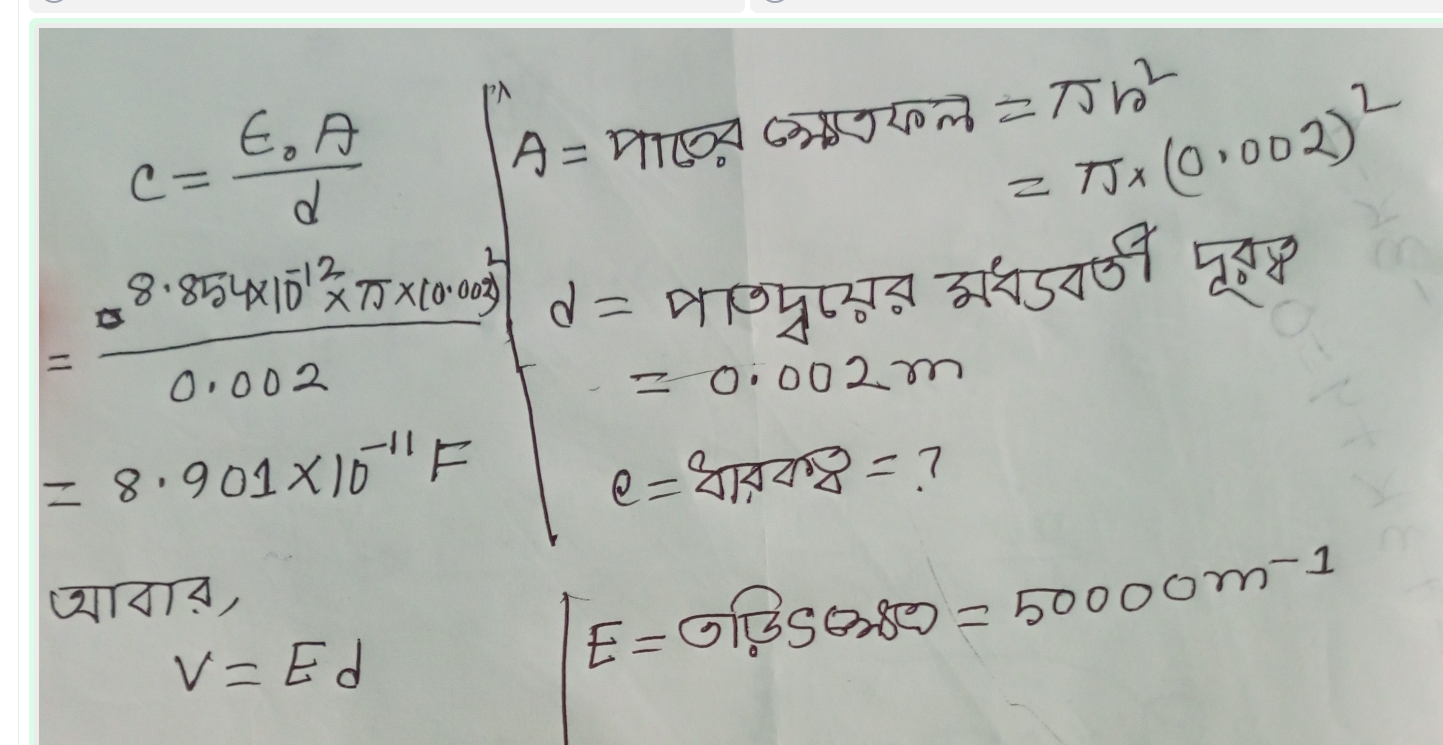 C = ε₀A / d
= 8.854×10⁻¹² × π×(0.002)² / 0.002
= 8.901×10⁻¹¹ F
A = পাতের ক্ষেত্রফল = πr²
= π×(0.002)²
d = পাতদ্বয়ের মধ্যবর্তী দূরত্ব
= 0.002m
C = ধারকত্ব = ?
আবার,
V = Ed
E = তড়িৎক্ষেত্র = 50000m⁻¹